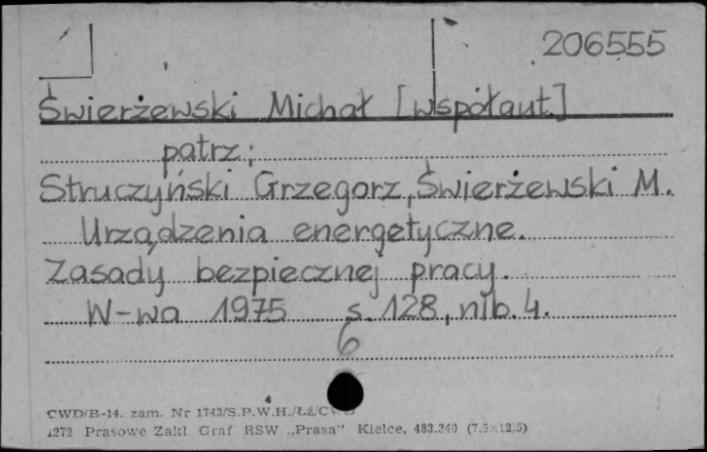 206555
Świerżewski Michał [współaut.]
patrz:
Struczyński Grzegorz, Świerżewski M.
Urządzenia energetyczne.
Zasady bezpiecznej pracy.
W-wa 1975 s. 128, nlb. 4.
6
CWD/B-14. zam. Nr 1743/S.P.W.H./ŁŻ/CWD
1272 Prasowe Zakł Graf RSW „Prasa” Kielce, 483.340 (7,5×12,5)